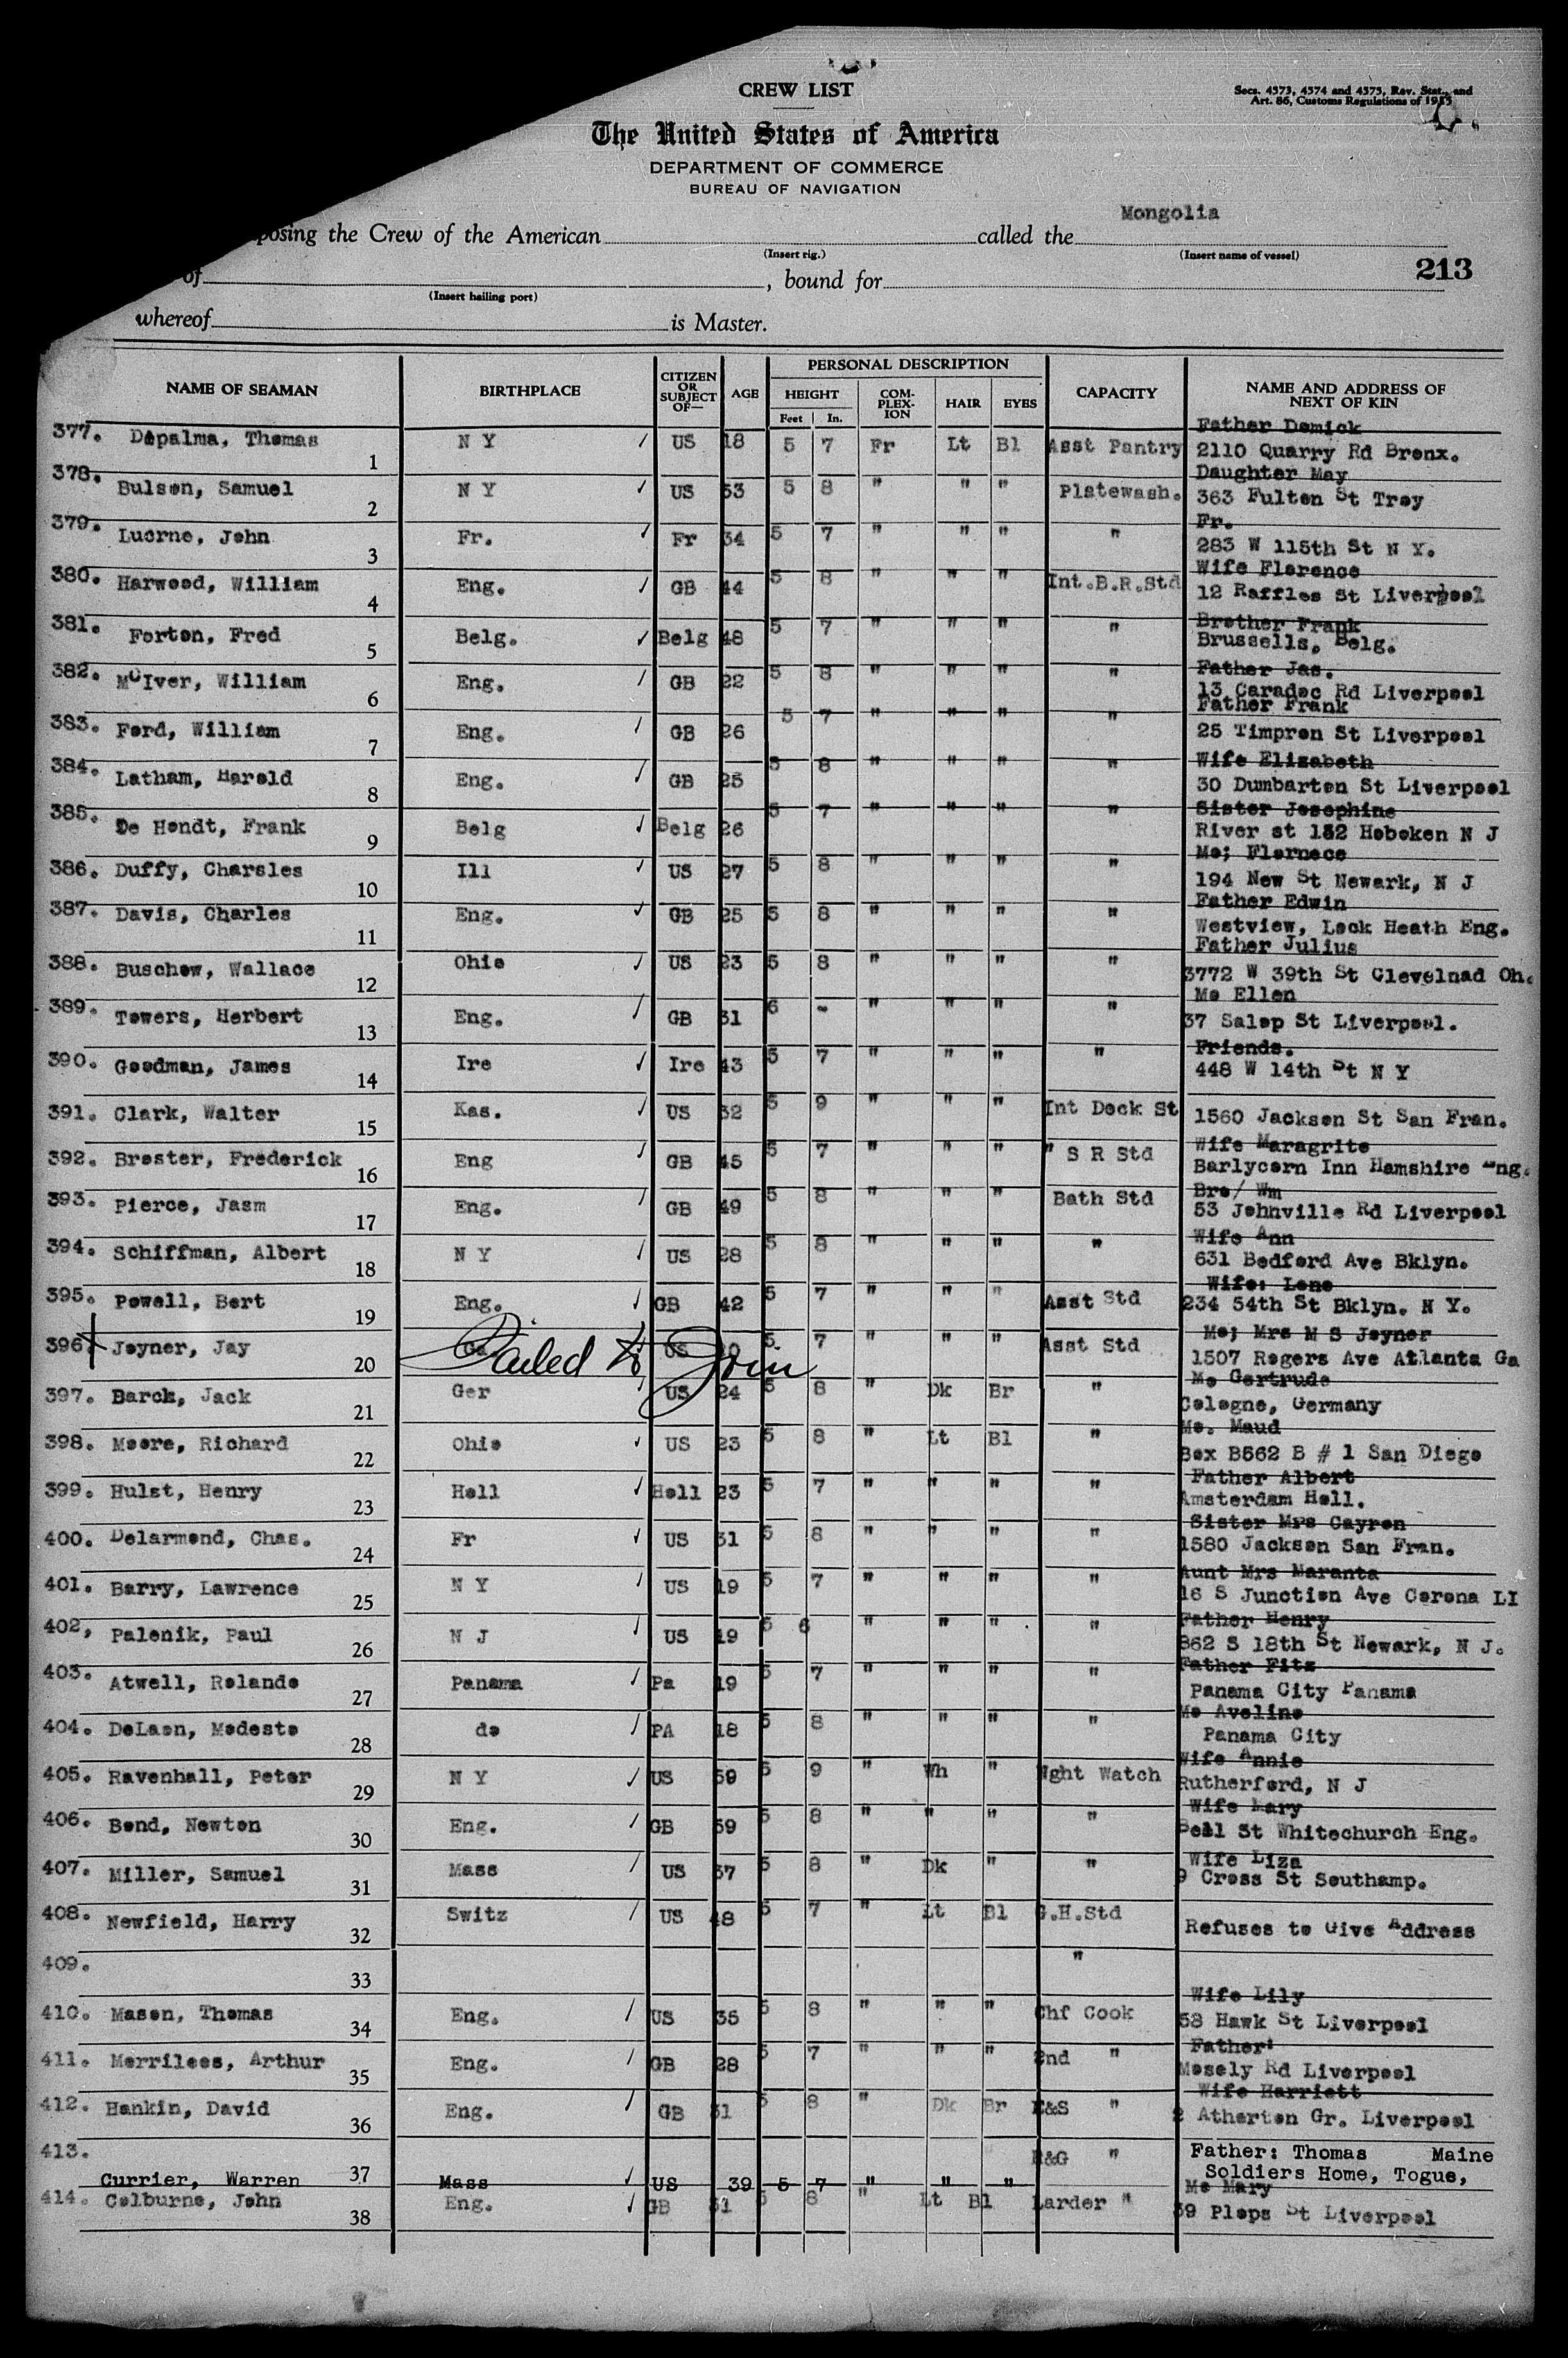 CREW LIST
Secs. 4573, 4574 and 4575, Rev. Stat., and
Art. 86, Customs Regulations of 1915
The United States of America
DEPARTMENT OF COMMERCE
BUREAU OF NAVIGATION
Mongolia
posing the Crew of the American called the
(Insert rig.) (Insert name of vessel)
of , bound for 213
(Insert hailing port)
whereof is Master.
NAME OF SEAMAN BIRTHPLACE CITIZEN OR SUBJECT OF— AGE PERSONAL DESCRIPTION HEIGHT Feet In. COM-PLEX-ION HAIR EYES CAPACITY NAME AND ADDRESS OF NEXT OF KIN
Father Demick
377. Depalma, Thomas 1 N Y ✓ US 18 5 7 Fr Lt Bl Asst Pantry 2110 Quarry Rd Bronx.
Daughter May
378. Bulson, Samuel 2 N Y ✓ US 53 5 8 " " " Platewash. 363 Fulton St Troy
Fr.
379. Lucrne, John 3 Fr. ✓ Fr 34 5 7 " " " " 283 W 115th St N Y.
Wife Florence
380. Harwood, William 4 Eng. ✓ GB 44 5 8 " " " Int.B.R.Std 12 Raffles St Liverpool
Brother Frank
381. Forton, Fred 5 Belg. ✓ Belg 48 5 7 " " " " Brussells, Belg.
Father Jas.
382. McIver, William 6 Eng. ✓ GB 22 5 8 " " " " 13 Caradoc Rd Liverpool
Father Frank
383. Ford, William 7 Eng. ✓ GB 26 5 7 " " " " 25 Timpron St Liverpool
Wife Elizabeth
384. Latham, Harold 8 Eng. ✓ GB 25 5 8 " " " " 30 Dumbarton St Liverpool
Sister Josephine
385. De Hondt, Frank 9 Belg ✓ Belg 26 5 7 " " " " River st 132 Hoboken N J
Mo; Flornece
386. Duffy, Charsles 10 Ill ✓ US 27 5 8 " " " " 194 New St Newark, N J
Father Edwin
387. Davis, Charles 11 Eng. ✓ GB 25 5 8 " " " " Westview, Lock Heath Eng.
Father Julius
388. Buschow, Wallace 12 Ohio ✓ US 23 5 8 " " " " 3772 W 39th St Clevelnad Oh.
Mo Ellen
389. Towers, Herbert 13 Eng. ✓ GB 31 6 - " " " " 37 Salop St Liverpool.
Friends.
390. Goodman, James 14 Ire ✓ Ire 43 5 7 " " " " 448 W 14th St N Y
391. Clark, Walter 15 Kas. ✓ US 32 5 9 " " " Int Deck St 1560 Jackson St San Fran.
Wife Maragrite
392. Broster, Frederick 16 Eng ✓ GB 45 5 7 " " " " S R Std Barlycorn Inn Hamshire Eng.
Bro/ Wm
393. Pierce, Jasm 17 Eng. ✓ GB 49 5 8 " " " Bath Std 53 Johnville Rd Liverpool
Wife Ann
394. Schiffman, Albert 18 N Y ✓ US 28 5 8 " " " " 631 Bedford Ave Bklyn.
Wife: Lene
395. Powell, Bert 19 Eng. ✓ GB 42 5 7 " " " Asst Std 234 54th St Bklyn. N Y.
Mo; Mrs M S Joyner
396. Joyner, Jay 20 Ga US 5 7 " " " Asst Std 1507 Rogers Ave Atlanta Ga
Failed to Join
Mo Gertrude
397. Barck, Jack 21 Ger US 24 5 8 " Dk Br " Cologne, Germany
Mo. Maud
398. Moore, Richard 22 Ohio ✓ US 23 5 8 " Lt Bl " Box B562 B # 1 San Diego
Father Albert
399. Hulst, Henry 23 Holl ✓ Holl 23 5 7 " " " " Amsterdam Holl.
Sister Mrs Cayron
400. Delarmond, Chas. 24 Fr ✓ US 31 5 8 " " " " 1580 Jackson San Fran.
Aunt Mrs Maranta
401. Barry, Lawrence 25 N Y ✓ US 19 5 7 " " " " 16 S Junction Ave Corona LI
Father Henry
402, Palenik, Paul 26 N J ✓ US 19 5 6 " " " " 862 S 18th St Newark, N J.
Father Fitz
403. Atwell, Rolando 27 Panama ✓ Pa 19 5 7 " " " " Panama City Panama
Mo Aveline
404. DeLaon, Modesto 28 do ✓ PA 18 5 8 " " " " Panama City
Wife Annie
405. Ravenhall, Peter 29 N Y ✓ US 59 5 9 " Wh " Nght Watch Rutherford, N J
Wife Mary
406. Bond, Newton 30 Eng. ✓ GB 59 5 8 " " " " Bell St Whitechurch Eng.
Wife Liza
407. Miller, Samuel 31 Mass ✓ US 37 5 8 " Dk " " 9 Cross St Southamp.
408. Newfield, Harry 32 Switz ✓ US 48 5 7 " Lt Bl G.H.Std Refuses to Give Address
409. 33 "
Wife Lily
410. Mason, Thomas 34 Eng. ✓ US 35 5 8 " " " Chf Cook 53 Hawk St Liverpool
Father'
411. Merrilees, Arthur 35 Eng. ✓ GB 28 5 7 " " " 2nd " Mosely Rd Liverpool
Wife Harriett
412. Hankin, David 36 Eng. ✓ GB 31 5 8 " Dk Br E&S " 2 Atherton Gr. Liverpool
413. R&G " Father: Thomas Maine
Currier, Warren 37 Mass ✓ US 39 5 7 " " " Soldiers Home, Togue,
Mo Mary
414. Colburne, John 38 Eng. ✓ GB 31 5 8 " Lt Bl Larder " 39 Plops St Liverpool